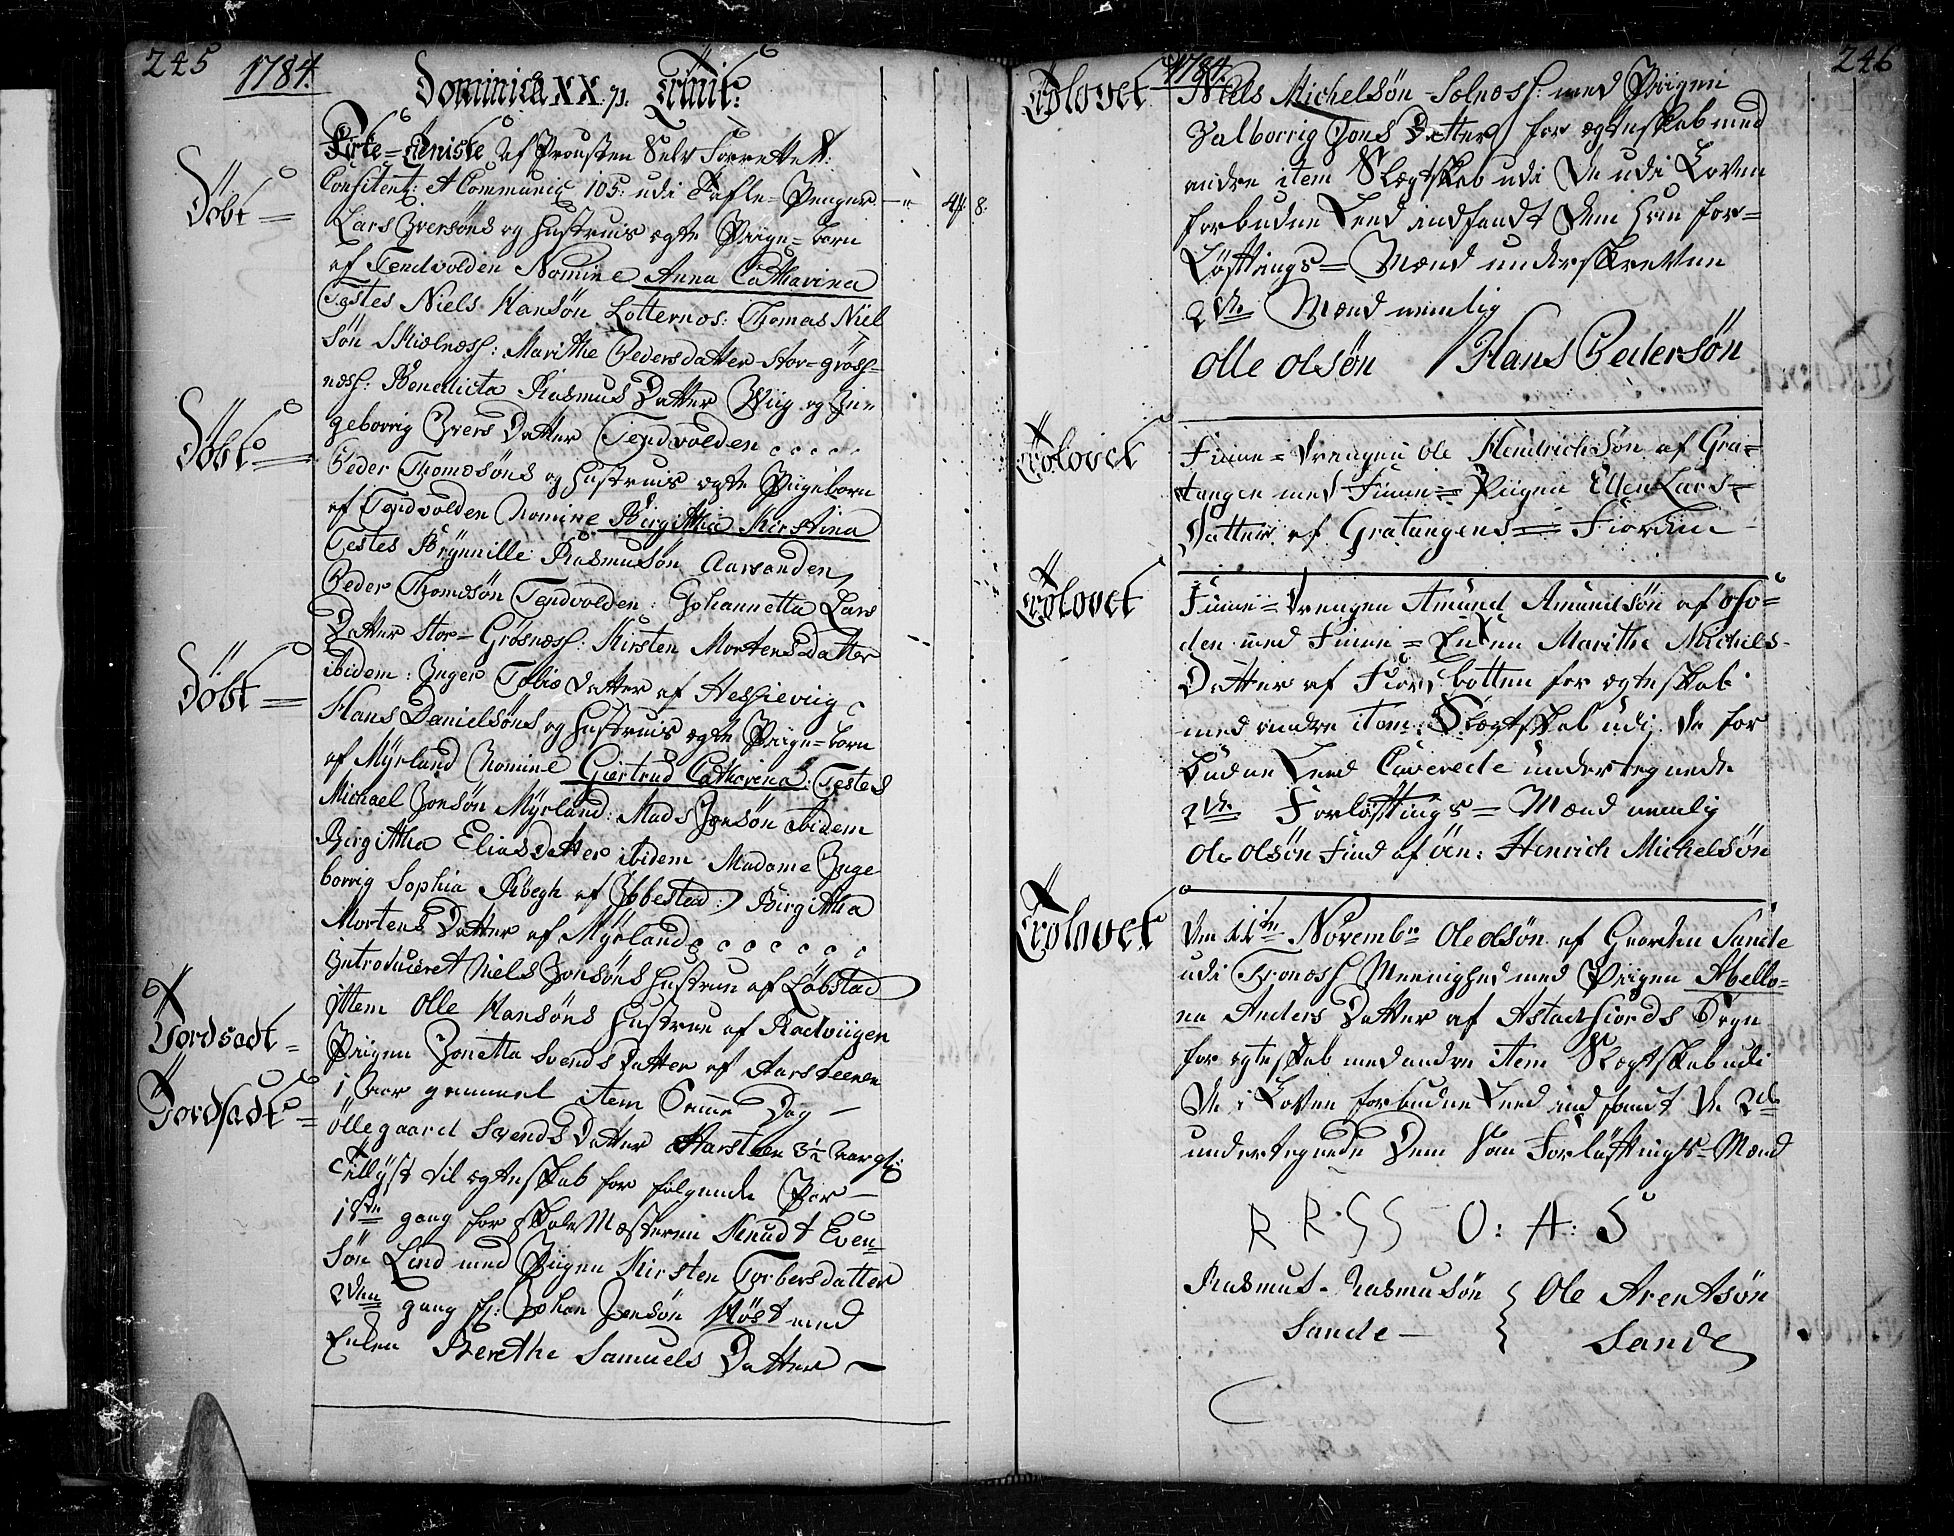 245
1784.
Dominica XX p. Trinit:
Kirke-Tieniste af Prousten Selv Forrettet:
Confitent: et Communic 105: udi Tafle-Penger — " 4 # 8.
Döbt =
Lars Iversöns og Hustrues ægte Piige-barn
af Tendvolden Nomine Anna Catharina
Testes Niels Hansön Lotternes: Thomas Niel
sön Skielness: Marithe Pedersdatter Stor-gröss-
ness: Benedicta Rasmus Datter Wiig og In
geborrig Ivers Datter Tendvolden
Döbt =
Peder Thomesöns og Hustrues ægte Piigebarn
af Tendvolden Nomine Birgitha Kirstina
Testes Brynnille Rasmusön Aarsanden
Peder Thomesön Tendvolden: Johannetta Lars
Datter Stor-Grösness: Kirsten Mortensdatter
ibidem: Inger Tobie Datter af Hessieviig
Döbt =
Hans Danielsöns og Hustrues ægte Piige-barn
af Myrland Nomine Giertrud Catharina: Testes
Michael Jonsön Myrland: Mads Jonsön ibidem
Birgitha Eliasdatter ibidem Madame Inge
borrig Sophia Röegh af Ibbestad: Birgitha
Mortens Datter af Myrland
Introduceret Niels Jonsöns Hustrue af Löbstad
ittem Olle Hansöns Hustrue af Radviigen
Jordsadt =
Piigen Jonetta Svends Datter af Aarsteenen
1 Aar gammel item Samme Dag —
Jordsadt =
Öllegaard Svends Datter Aarsteen 3½ Aar gl:
Tillyst til ægteskab for fölgende Par —
1ste gang for SkoleMesteren Knudt Even-
sön Lind med Piigen Kirsten Torbersdatter
2den gang for: Johan Jonsön Höst med
Enken Berethe Samuels Datter —
246
1784.
Trolovet
Niels Michelsön Solness: med Piigen
Valborrig Jons Datter for ægteskab med
andre item Slegtskab udi De udi Loven
forbudne Leed indfandt dem som for-
Löftnings-Mænd underskrevne
2de Mænd nemlig
Olle Olsön Hans Pedersön
Trolovet
Finne-Drengen Ole Hendrichsön af Gra-
tangen med Finne-Piigen Ellen Lars-
Datter af Gratangens-Fiorden
Trolovet
Finne-Drengen Amund Amundsön af
den med Finne-Enken Marithe Michels-
Datter af Fiordbotten for ægteskab
med andre item: Slegtskab udi de for
budne Leed Caverede undertegnede
2de Forlöftnings-Mænd nemlig
Ole Olsön Find af öen: Henrich Michelsön
Trolovet
Den 11te Novembr Ole Olsön af Gaarden Sande
udi Troness Meenighed med Piigen Abello-
na Anders Datter af Astadfiords Sogn
for ægteskab med andre item Slegtskab udi
De i Loven forbudne Leed indfandt De 2de
undertegnede Dem som Forlöftnings-Mænd
R R S S O: A: S
Rasmus Rasmusön Ole Arentsön
Sande — Sande